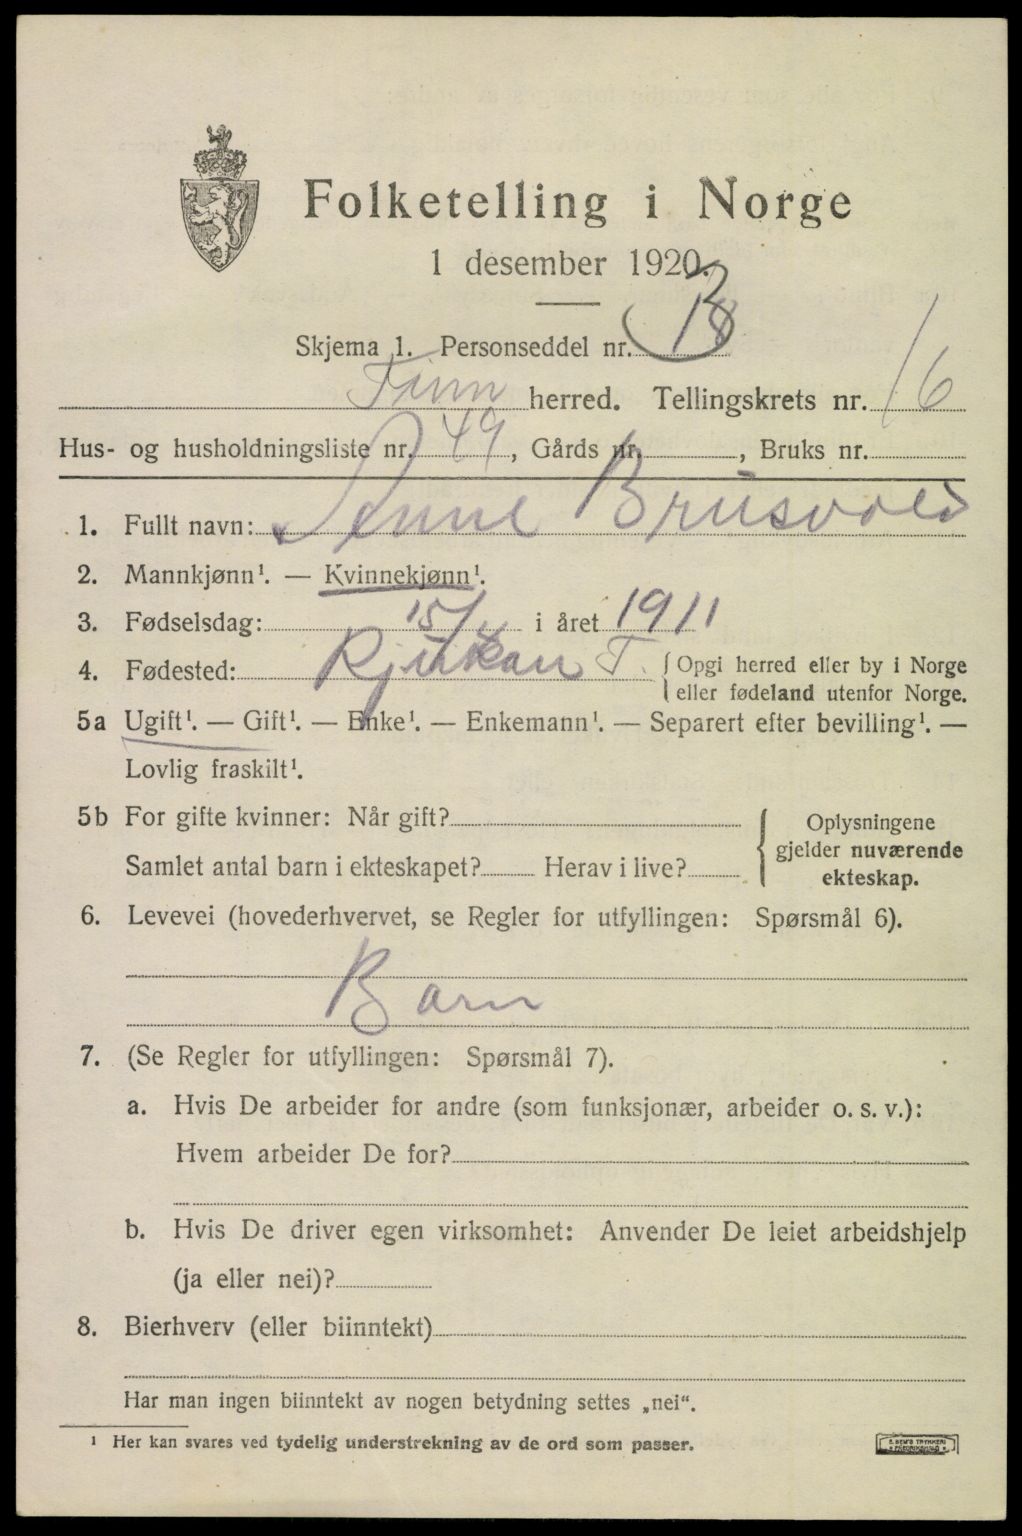 Folketelling i Norge
1 desember 1920.
Skjema 1. Personseddel nr.
Tinn herred. Tellingskrets nr. 16
Hus- og husholdningsliste nr. 49, Gårds nr. , Bruks nr.
1. Fullt navn: Anne Brusvold
2. Mannkjønn¹. — Kvinnekjønn¹.
3. Fødselsdag: 15/4 i året 1911
4. Fødested: Rjukan T. Opgi herred eller by i Norge
eller fødeland utenfor Norge.
5a Ugift¹. — Gift¹. — Enke¹. — Enkemann¹. — Separert efter bevilling¹. —
Lovlig fraskilt¹.
5b For gifte kvinner: Når gift?
Samlet antal barn i ekteskapet? Herav i live?
Oplysningene
gjelder nuværende
ekteskap.
6. Levevei (hovederhvervet, se Regler for utfyllingen: Spørsmål 6).
Barn
7. (Se Regler for utfyllingen: Spørsmål 7).
a. Hvis De arbeider for andre (som funksjonær, arbeider o. s. v.):
Hvem arbeider De for?
b. Hvis De driver egen virksomhet: Anvender De leiet arbeidshjelp
(ja eller nei)?
8. Bierhverv (eller biinntekt)
Har man ingen biinntekt av nogen betydning settes „nei“.
¹ Her kan svares ved tydelig understrekning av de ord som passer.